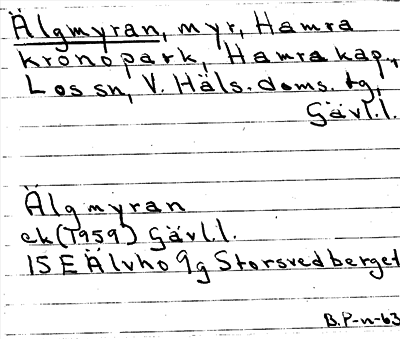 Älgmyran, myr, Hamra
kronopark, Hamra kap.,
Los sn, V. Häls. doms. tg,
Gävl.l.
Älgmyran
ek (1959) Gävl.l.
15 E Älvho 9g Storsvedberget
B.P-n-63